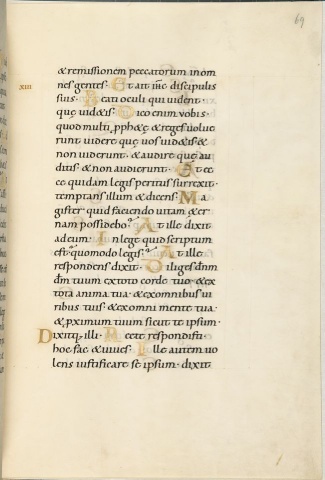 69
& remissionem peccatorum in om
nes gentes· Et ait ihc discipulis
suis· Beati oculi qui uident·
quę uid&is· Dico enim uobis·
quod multi pph&ę & reges uolue
runt uidere quę uos uid&is &
non uiderunt· & audire quę au
ditis & non audierunt· Et ec
ce quidam legis peritus surrexit·
temptans illum & dicens· Ma
xiii
gister quid faciendo uitam &er
nam possidebo· At ille dixit
ad eum· In lege quid scriptum
est· quomodo legis· At ille
respondens dixit· Diliges dnm
dm tuum ex toto corde tuo· & ex
tota anima tua· & ex omnibus ui
ribus tuis· & ex omni mente tua·
& pximum tuum sicut te ipsum·
Dixitq· illi· Recte respondisti·
hoc fac & uiues· Ille autem uo
lens iustificare se ipsum· dixit